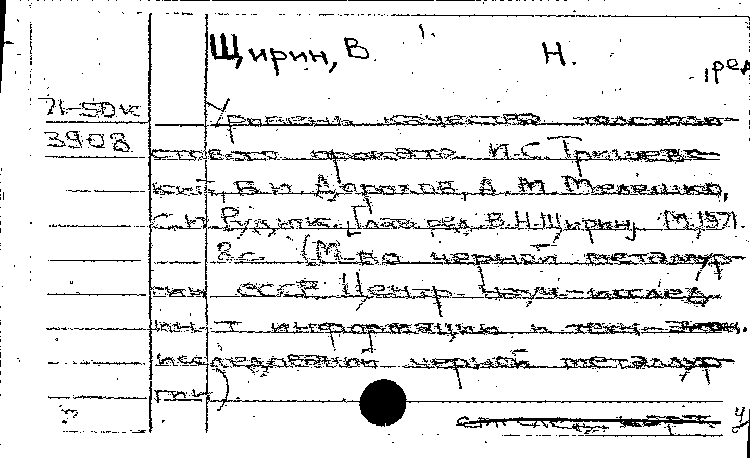 Щирин, В. Н.
, ред
71-50к Уровень качества толстоли-
3908 стового проката. И.С. Тришевс-
кий, В.И. Дорохов, А.М. Мелешко,
С.И. Рудюк. [Глав. ред. В.Н. Щирин]. М., 1971.
8 с. (М-во черной металлур-
гии СССР. Центр. науч.-исслед.
ин-т информации и техн.-экон.
исследований черной металлур-
гии).